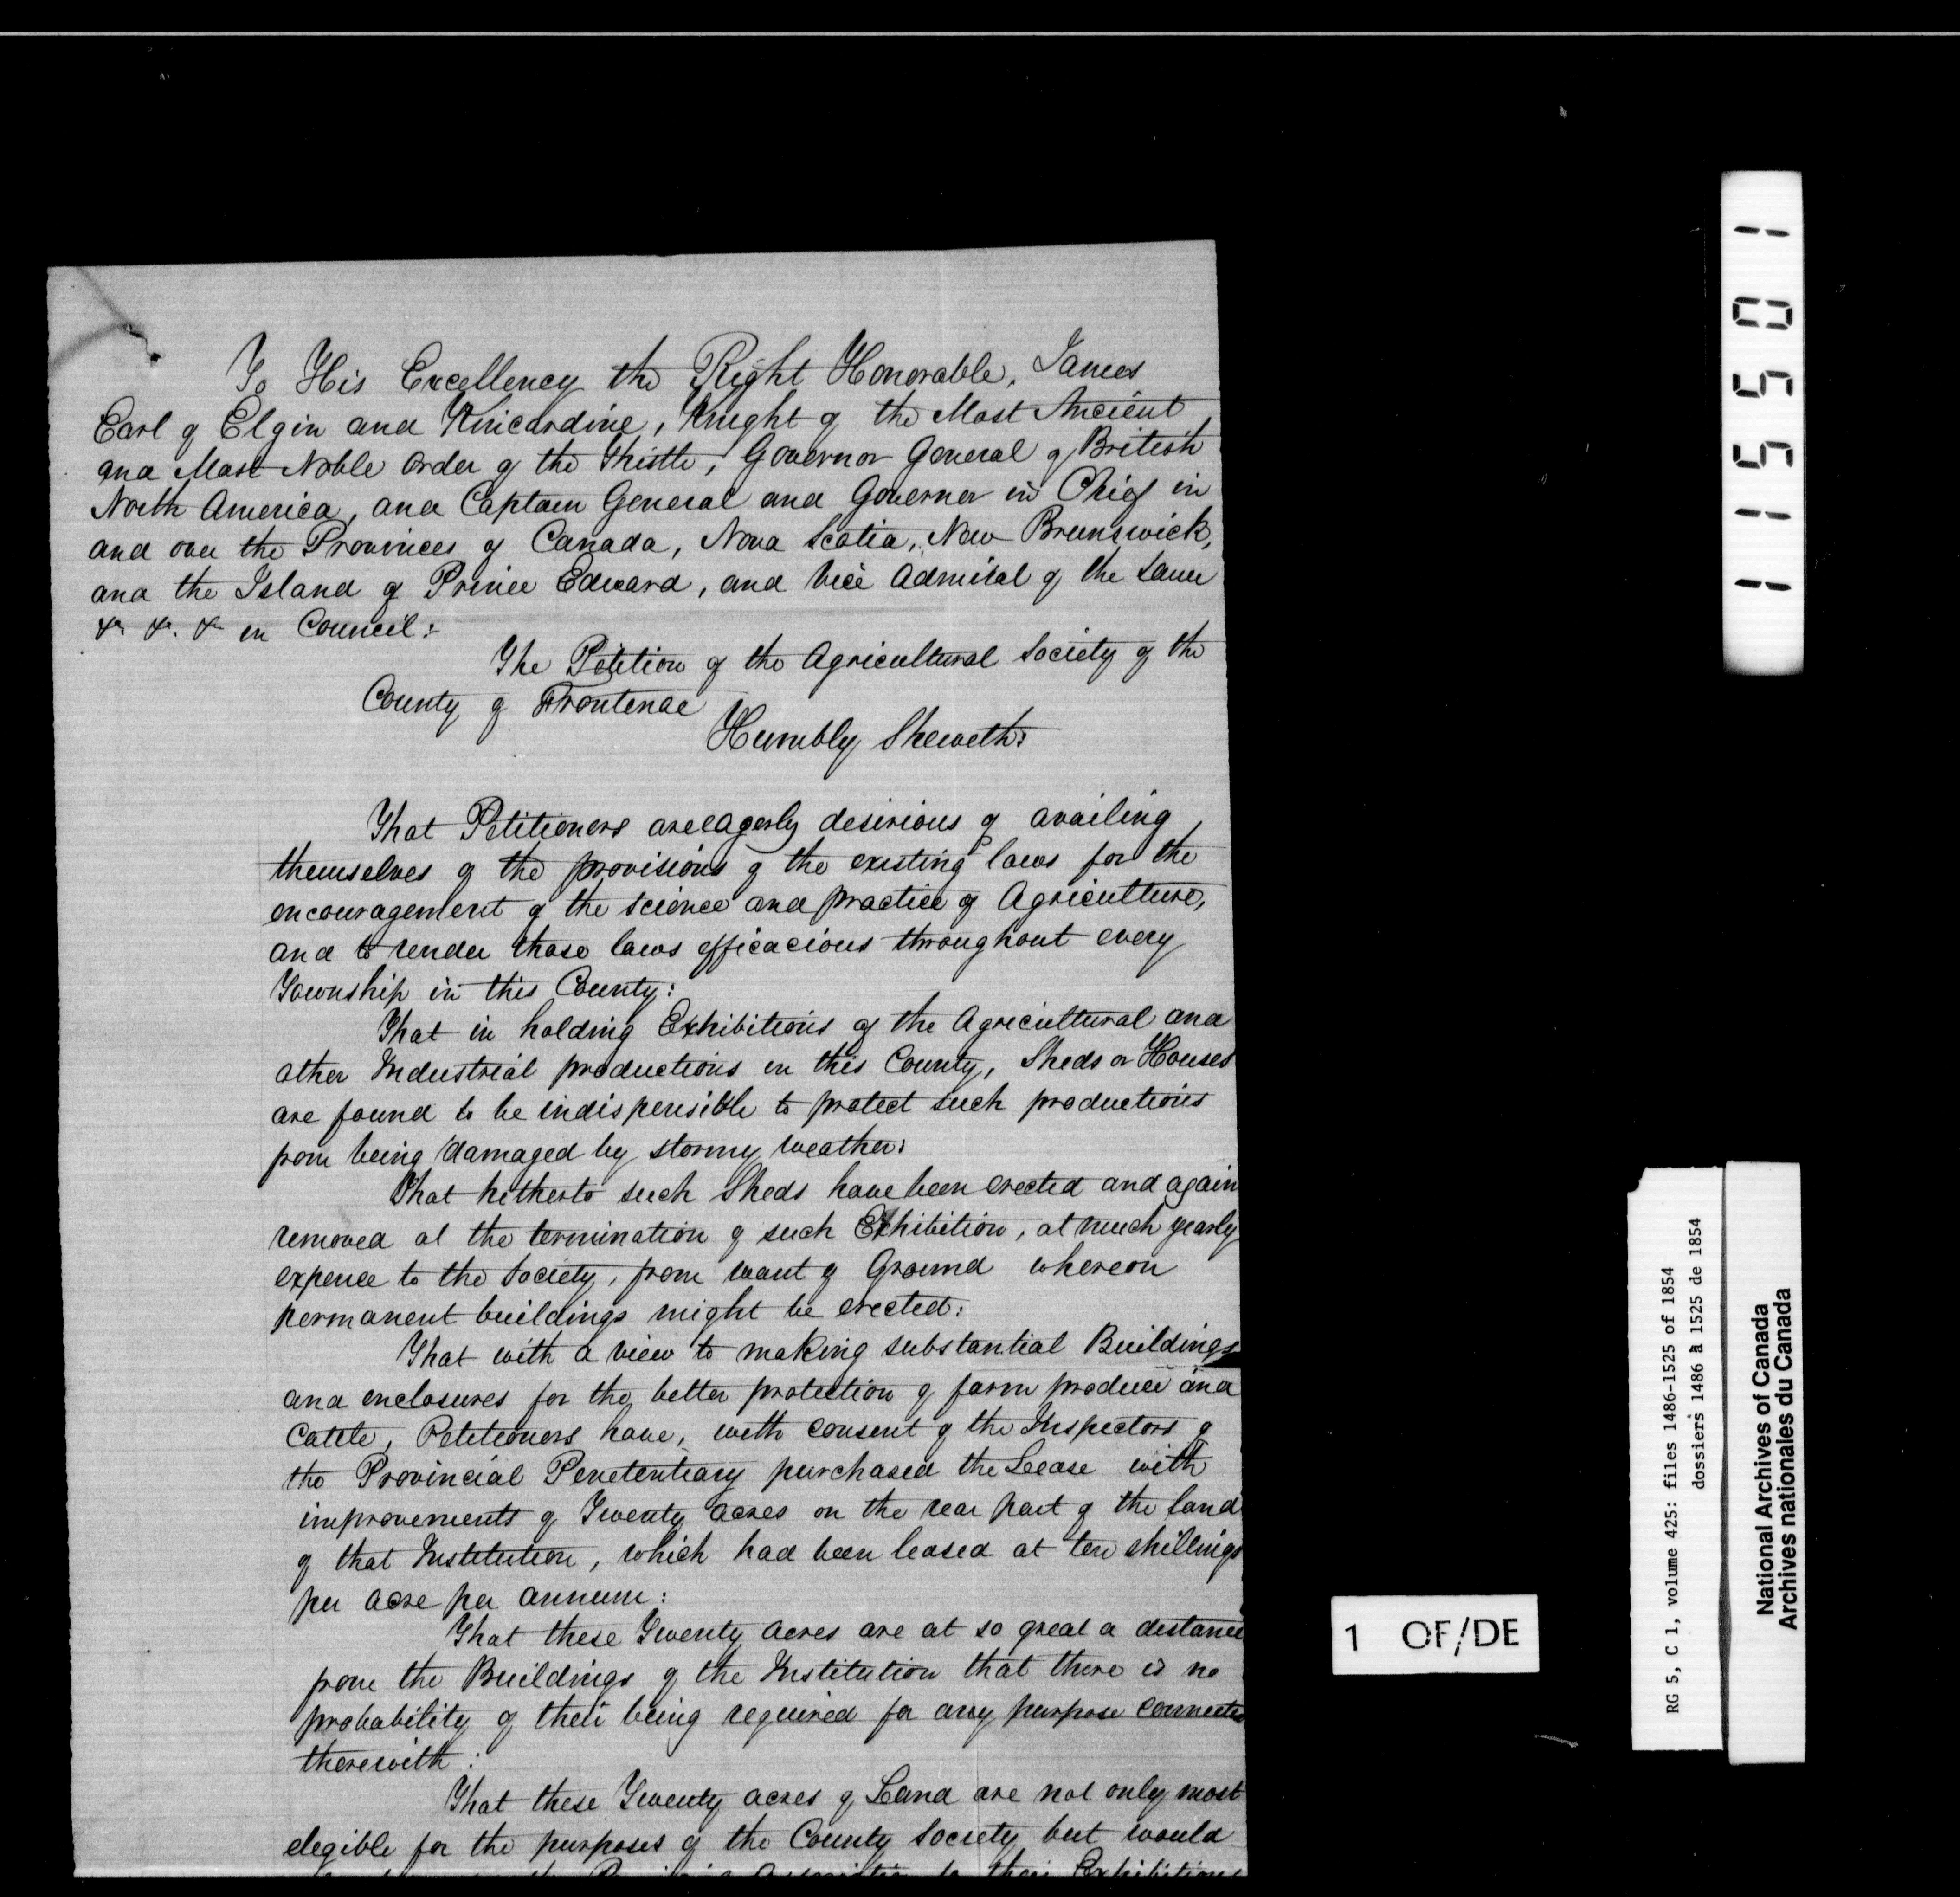 To His Excellency the Right Honorable, James
Earl of Elgin and Kincardine, Knight of the Most Ancient
and Most Noble Order of the Thistle, Governor General of British
North America, and Captain General and Governor in Chief in
and over the Provinces of Canada, Nova Scotia, New Brunswick,
and the Island of Prince Edward, and Vice Admiral of the same
&c &c. &c in Council:
The Petition of the Agricultural Society of the
County of Frontenac
Humbly Sheweth:
That Petitioners are eagerly desirious of availing
themselves of the provisions of the existing laws for the
encouragement of the science and practice of Agriculture,
and to render those laws efficacious throughout every
Township in this County:
That in holding Exhibitions of the Agricultural and
other Industrial productions in this County, Sheds or Houses
are found to be indispensible to protect such productions
from being damaged by stormy weather:
That hitherto such Sheds have been erected and again
removed at the termination of such Exhibition, at much yearly
expence to the Society, from want of Ground whereon
permanent buildings might be erected:
That with a view to making substantial Buildings
and enclosures for the better protection of farm produce and
Cattle, Petitioners have, with consent of the Inspectors of
the Provincial Penetentiary purchased the Lease with
improvements of Twenty acres on the rear part of the land
of that Institution, which had been leased at ten shillings
per acre per annum:
That these Twenty acres are at so great a distance
from the Buildings of the Institution that there is no
probability of their being required for any purpose connected
therewith:
That these Twenty acres of Land are not only most
elegible for the purposes of the County Society but would
Exhibitions
115501
1 OF/DE
RG 5, C 1, volume 425: files 1486-1525 of 1854
dossiers 1486 à 1525 de 1854
National Archives of Canada
Archives nationales du Canada